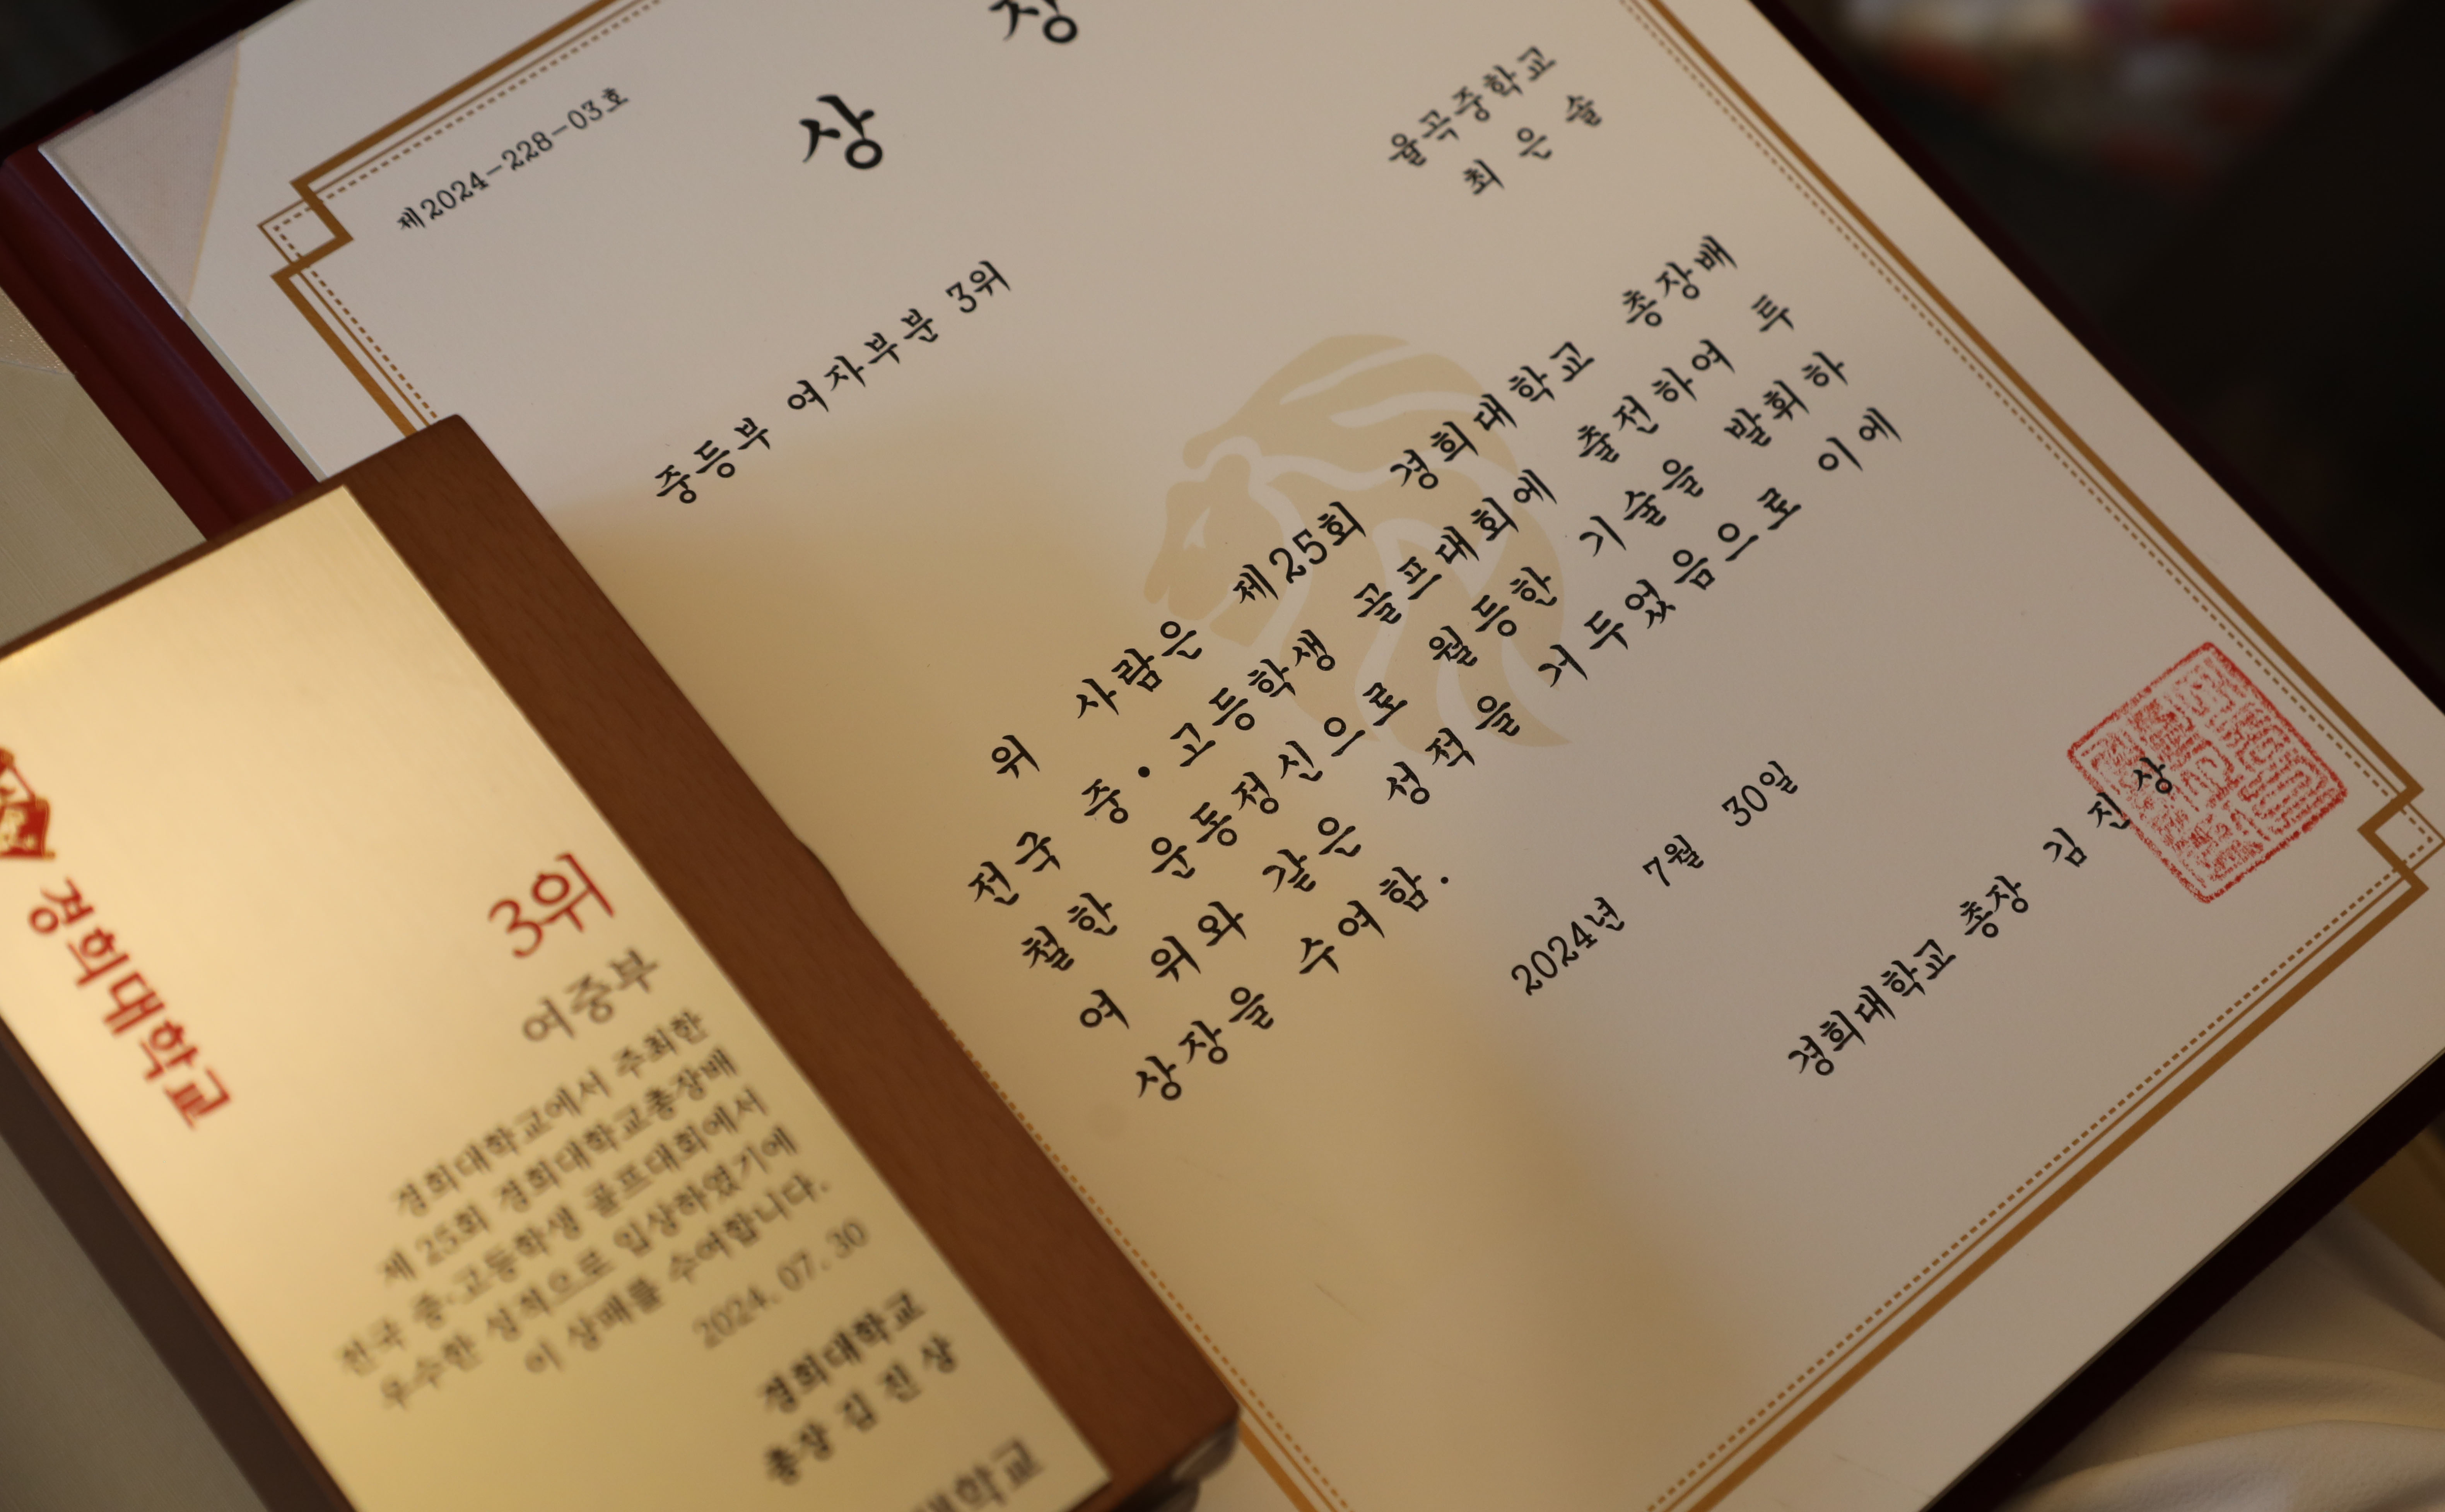 상 장
제2024-228-03호
중등부 여자부분 3위
율곡중학교
최 은 솔
위 사람은 제25회 경희대학교 총장배
전국 중·고등학생 골프대회에 출전하여 투
철한 운동정신으로 월등한 기술을 발휘하
여 위와 같은 성적을 거두었음으로 이에
상장을 수여함.
2024년 7월 30일
경희대학교 총장 김 진 상
경희대학교
3위
여중부
경희대학교에서 주최한
제 25회 경희대학교총장배
전국 중·고등학생 골프대회에서
우수한 성적으로 입상하였기에
이 상패를 수여합니다.
2024. 07. 30
경희대학교
총장 김 진 상
대학교